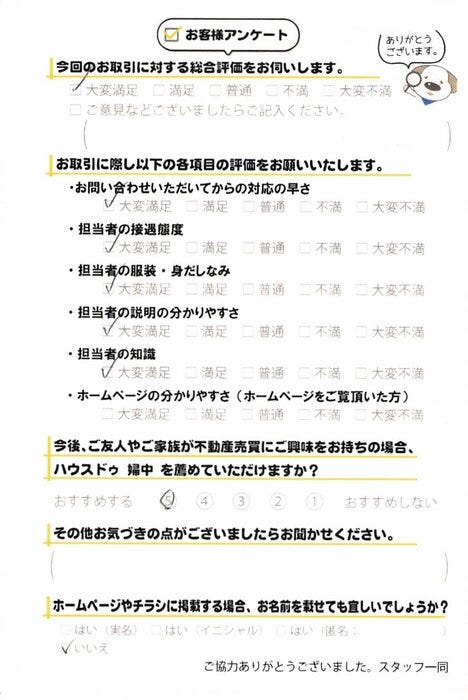 お客様アンケート
ありがとう
ございます。
今回のお取引に対する総合評価をお伺いします。
☑大変満足 □満足 □普通 □不満 □大変不満
□ご意見などございましたらご記入ください。
( )
お取引に際し以下の各項目の評価をお願いいたします。
・お問い合わせいただいてからの対応の早さ
☑大変満足 □満足 □普通 □不満 □大変不満
・担当者の接遇態度
☑大変満足 □満足 □普通 □不満 □大変不満
・担当者の服装・身だしなみ
☑大変満足 □満足 □普通 □不満 □大変不満
・担当者の説明の分かりやすさ
☑大変満足 □満足 □普通 □不満 □大変不満
・担当者の知識
☑大変満足 □満足 □普通 □不満 □大変不満
・ホームページの分かりやすさ（ホームページをご覧頂いた方）
□大変満足 □満足 □普通 □不満 □大変不満
今後、ご友人やご家族が不動産売買にご興味をお持ちの場合、
ハウスドゥ 婦中 を薦めていただけますか？
おすすめする ⑤ ④ ③ ② ① おすすめしない
その他お気づきの点がございましたらお聞かせください。
( )
ホームページやチラシに掲載する場合、お名前を載せても宜しいでしょうか？
□はい（実名） □はい（イニシャル） □はい（匿名： ）
☑いいえ
ご協力ありがとうございました。スタッフ一同